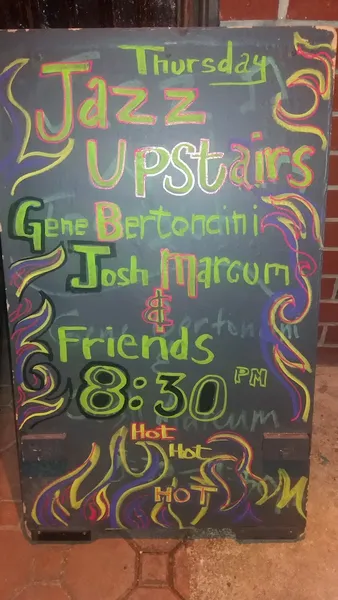 Thursday
Jazz
Upstairs
Gene Bertoncini
Josh Marcum
&
Friends
8:30 PM
Hot
Hot
HOT